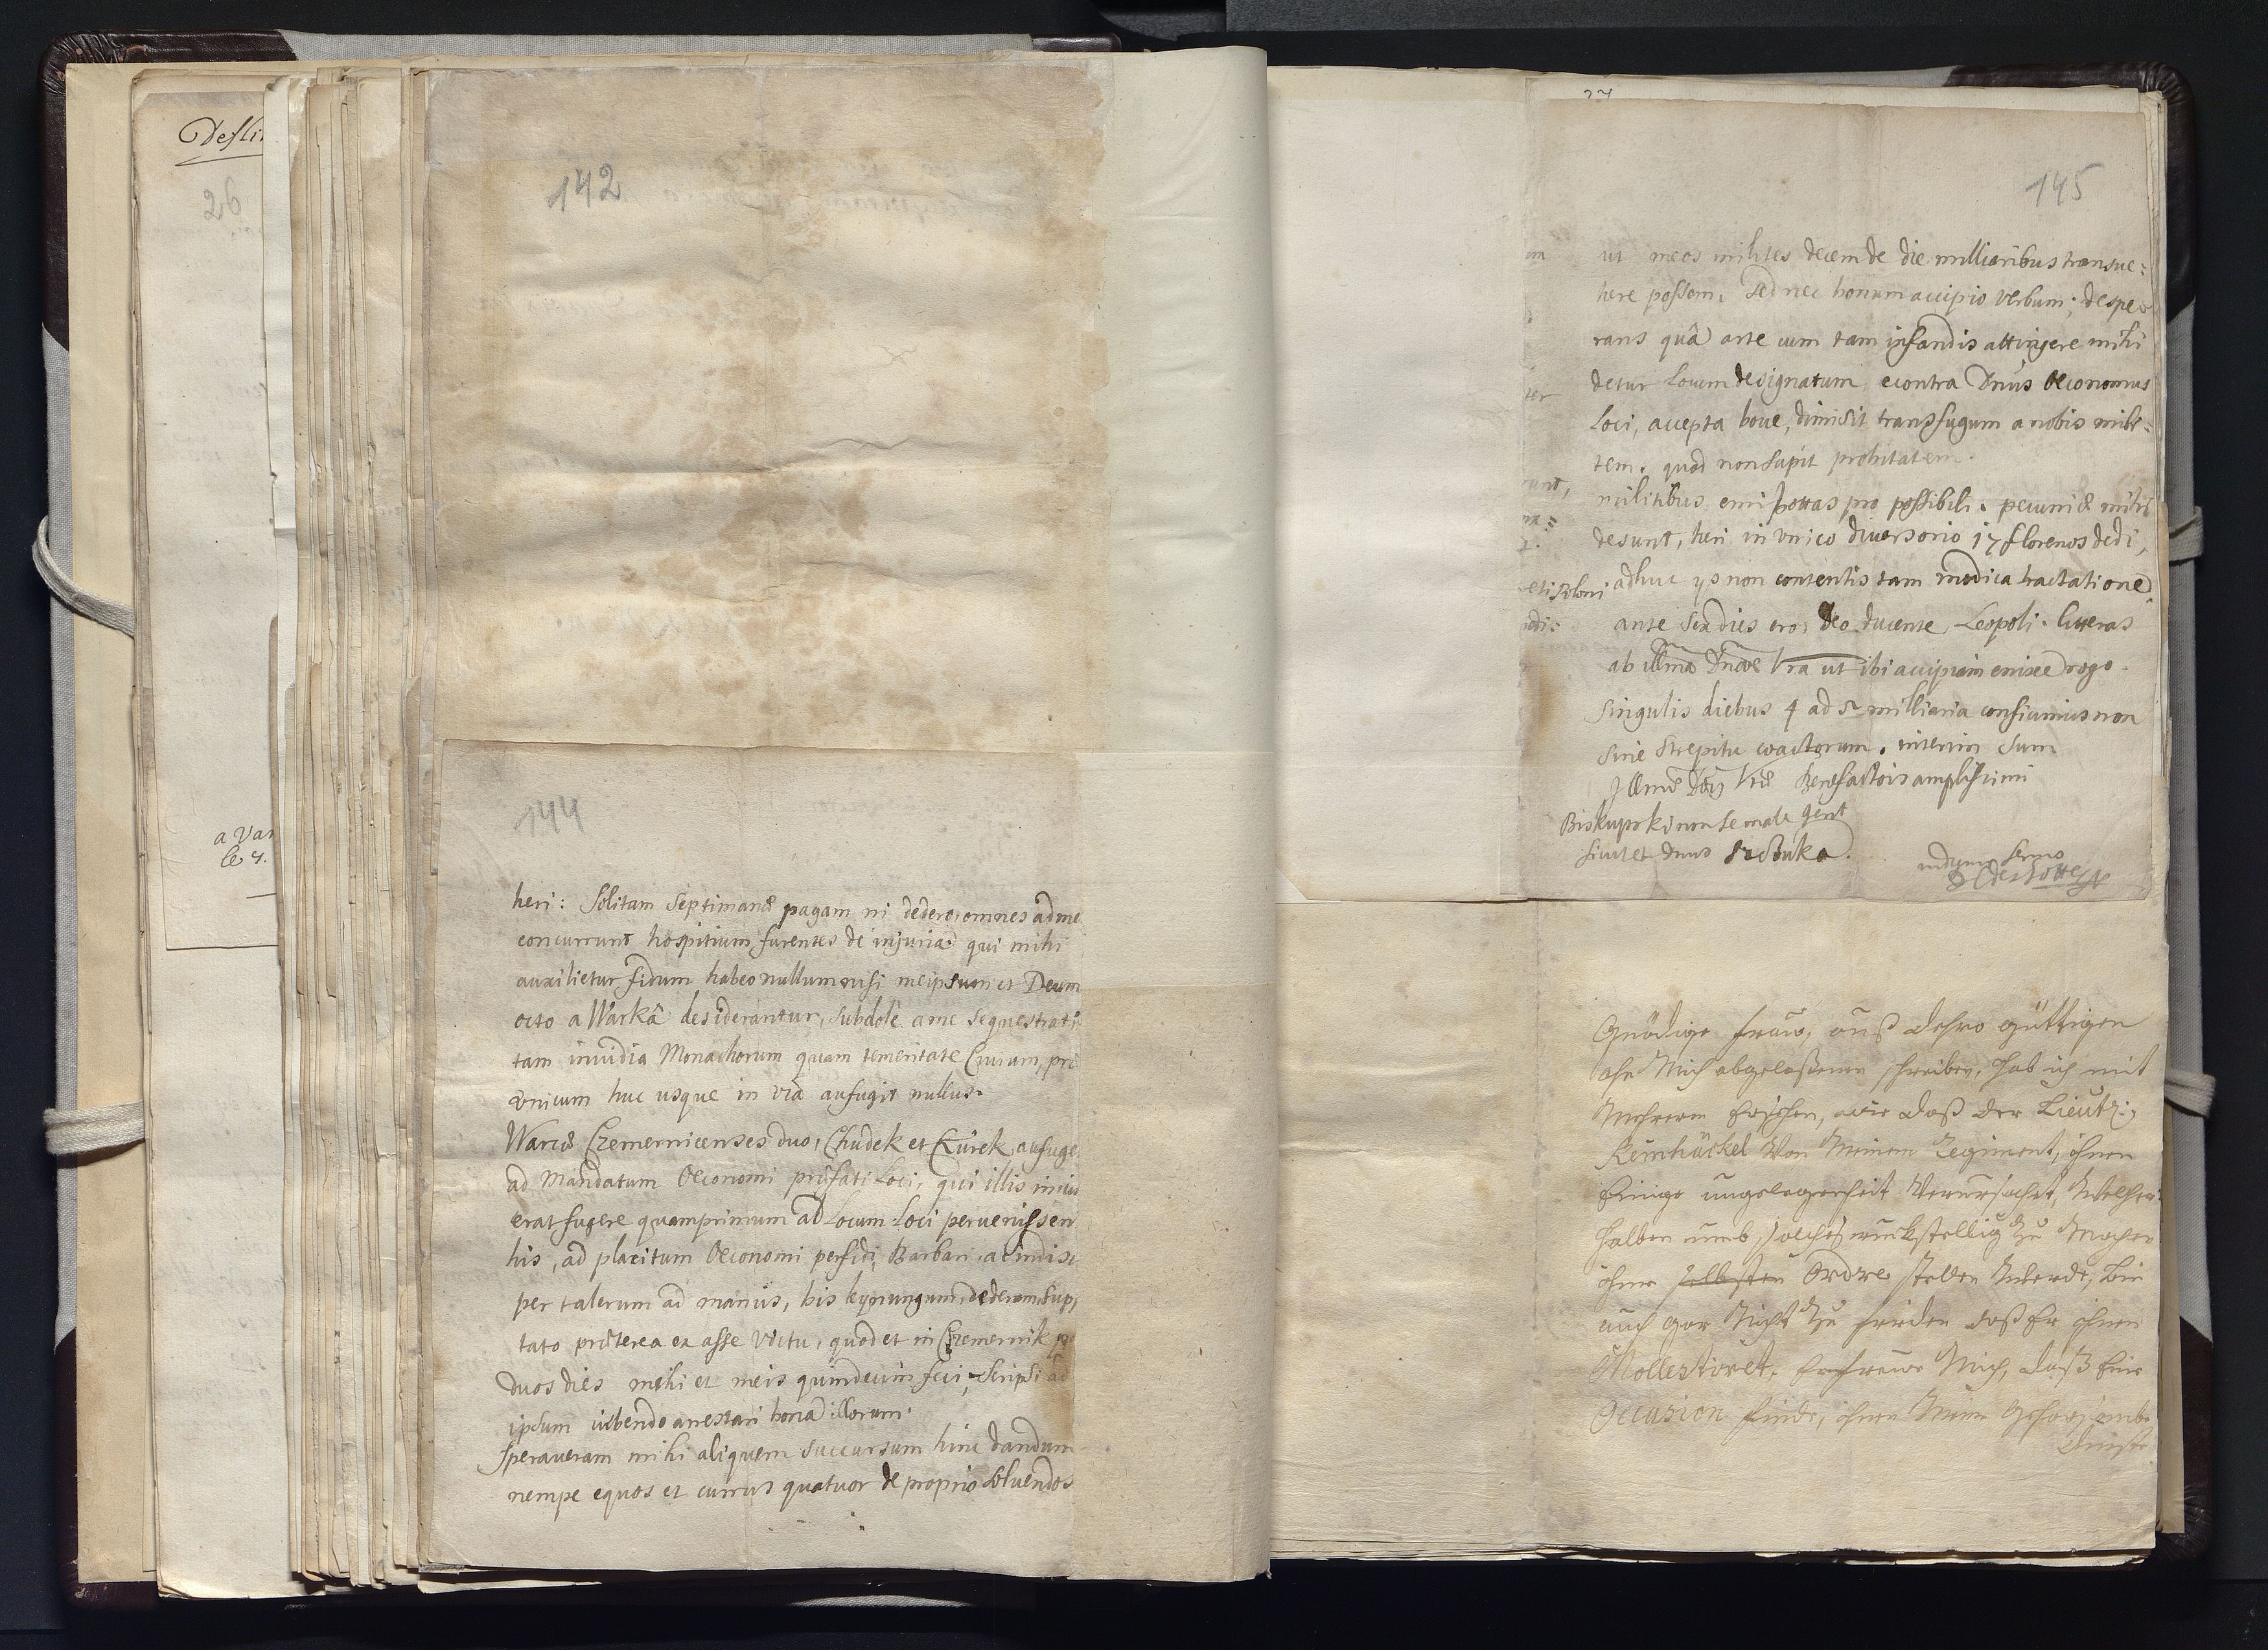 26
a Var
le 4.
142
144
heri: Solitam Septimanæ pagam ni dedero, omnes ad me
concurrunt hospitium, furentes de injuria qui mihi
auxilietur fidum habeo nullum nisi meipsum et Deum
octo a Warkâ desiderantur, subdolè a me sequestrati
tam invidia Monachorum quam temeritate Civium, pr
vnicum huc usque in via aufugit nullus.
Warus Czemernicenses duo, Chudek et Kurek aufuge
ad Mandatum Oeconomi præfati Loci, qui illis
erat fugere quamprimum ad Locum Loci pervenissen
his, ad placitum Oeconomi perfidi, Barbari
per talerum ad manus, bis dederam, sup
tato præterea ex asse victu, quod et in Czemernik p
duos dies mihi et meis quindecim feci, Scripsi ad
ipsum iubendo arrestari bona illorum.
Speraueram mihi aliquem succursum hinc dandum
nempe equos et currus quatuor de proprio soluendos
27
145
ut meos milites decem de die milliaribus transue=
here possem. Sed nec bonum accipio verbum; despe=
rans quâ arte cum tam infandis attingere mihi
detur Locum designatum, econtra Dnus Oeconomus
Loci, accepta boue, dimisit transfugum a nobis mili=
tem. quod non sapit probitatem.
militibus emi pro possibili. pecuniæ mihi
desunt, heri in vnico diuersorio 17 florenos dedi,
adhuc ys non contentis tam modica tractatione
ante sex dies ero, Deo ducente, Leopoli. litteras
ab Illma Dnae Vra ut ibi accipiam enixe rogo.
Singulis diebus 4 ad 5 milliaria conficimus non
sine strepitu coactorum. interim sum
Illmæ Dnis Vræ Benefactoris amplissimi
Biskupski non se male gerit
sicut et dnus
Gnädige fraw, auß dehro güttigen
ahn Mich abgelaßenen schreiben, hab ich mit
Mehrerm ersehen, wie daß der Lieut:
Reinhäckel Von Meinem Regiment, ihnen
Einige ungelegenheit Verursachet, Welchen
halben umb solches rückstellig zu Machen
ihme selbsten Ordre stellen Werde, bin
auch gar Nicht zu frieden daß Er ihnen
Mollestiret. Erfrewe Mich, daß Eine
Occasion finde, ihnen Meine